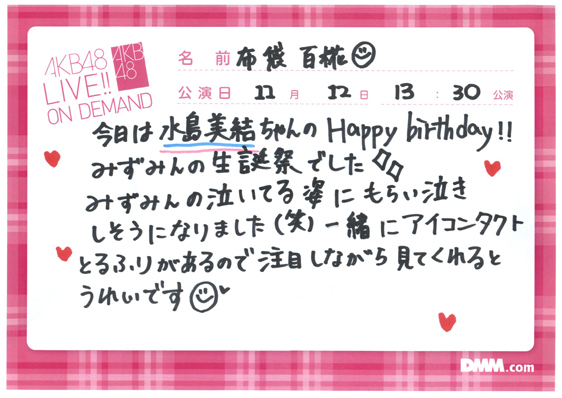 AKB48
LIVE!!
ON DEMAND
AKB
48
名前 布袋 百椛
公演日 11月 12日 13:30 公演
今日は水島美結ちゃんのHappy birthday!!
みずみんの生誕祭でした
みずみんの泣いてる姿にもらい泣き
しそうになりました(笑)一緒にアイコンタクト
とるふりがあるので注目しながら見てくれると
うれしいです
DMM.com